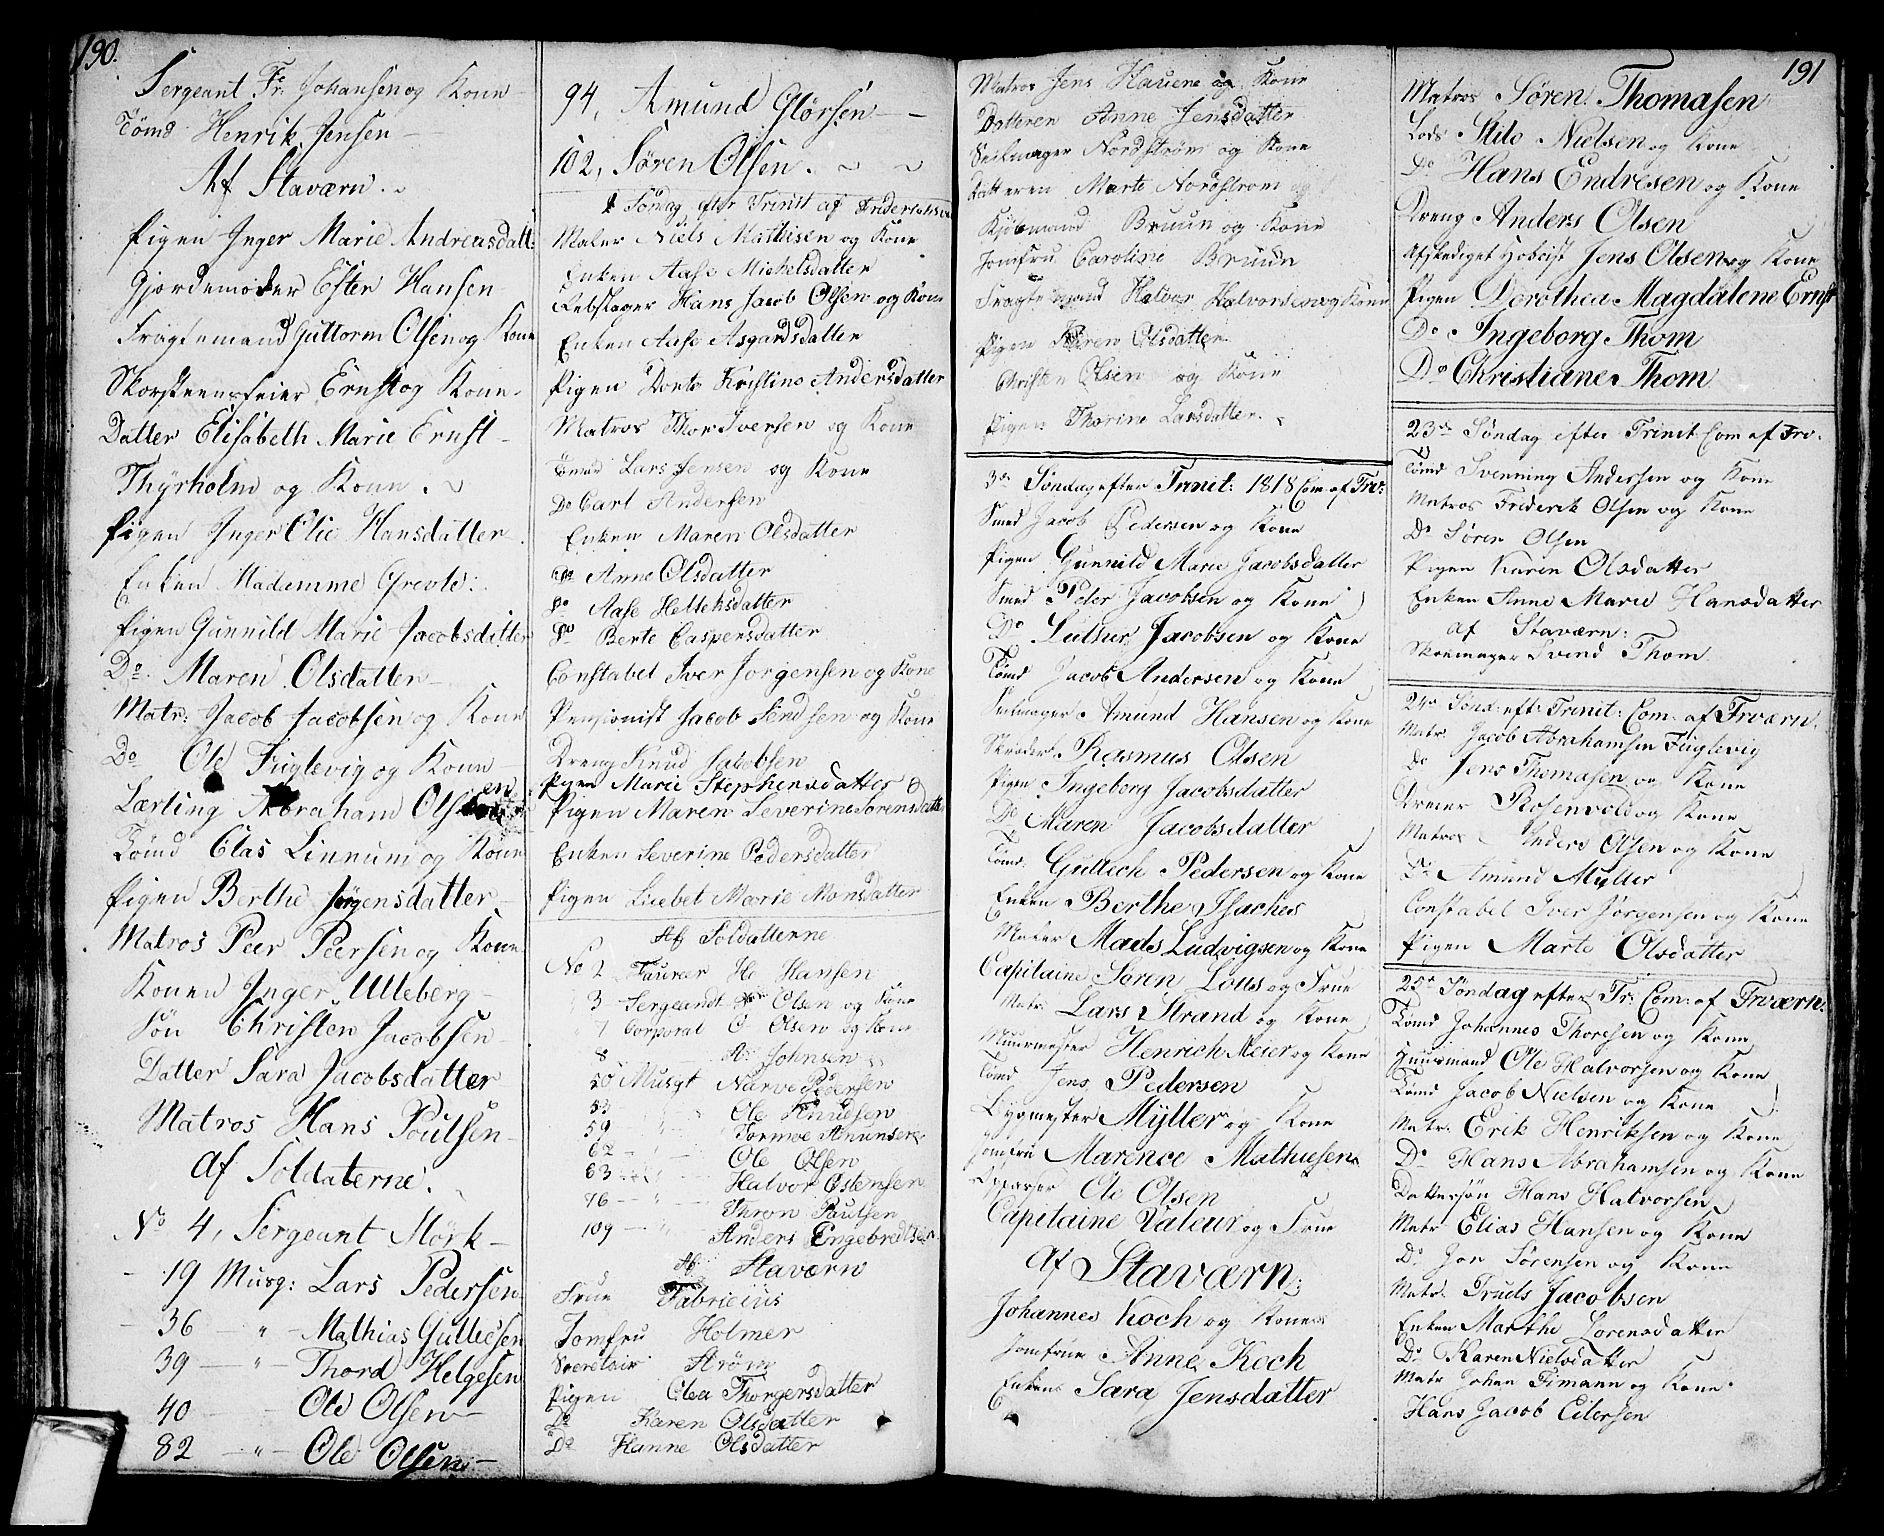 190.
Sergeant Fr. Johansen og Kone
Tömd Henrik Jensen
Af Staværn.
Pigen Inger Marie Andreasdatt:
Gjordemoder Ester Hansen
Fragtemand Guttorm Olsen og Kone
Skorsteensfeier Ernst og Kone.
Datter Elisabeth Marie Ernst
Thyrholm og Kone.
Pigen Inger Olie Hansdatter
Enken Mademme Grevle:
Pigen Gunnild Marie Jacobsdatter
Do. Maren Olsdatter
Matr: Jacob Jacobsen og Kone
Do Ole Fuglevig og Kone
Lærling Abraham Olsen
Tömd Clas Linnum og Kone
Pigen Berthe Jörgensdatter
Matros Peer Peersen og Kone
Konen Inger Ulleberg
Sön Christen Jacobsen
Datter Sara Jacobsdatter
Matros Hans Poulsen
Af Soldaterne.
No 4, Sergeant Mörk
19 Musq: Lars Pedersen
36 " Mathias Gulliesen
39 " Thord Helgesen
40 Ole Olsen
82 " Ole Olsen
94, Amund Glörsen
102, Sören Olsen.
Söndag efter Trinit af Frideriksv
Maler Niels Mathisen og Kone
Enken Aase Michelsdatter
Rebslager Hans Jacob Olsen og Kone
Enken Aase Asgardsdatter
Pigen Dorte Kristine Andersdatter
Matros Thor Iversen og Kone
Tömd Lars Jensen og Kone
Do Carl Andersen
Enken Maren Olsdatter
Do Anne Olsdatter
Do Aase Hellehsdatter
Do Berte Caspersdatter
Constabel Iver Jörgensen og Kone
Pensionist Jacob Sendsen og Kone
Dreng Knud Jacobsen
Pigen Marie Stephensdatter
Pigen Maren Severine Sorensdatt
Enken Severine Pedersdatter
Pigen Lisebet Marie Monsdatter
Af Soldatterne
No 2 Faurer Ho Hansen
3 Sergeandt Olsen og Kone
7 Corporal O Olsen og Kone
8 A. Johnsen
20 Musqt Narve Pedersen
33 Ole Knudsen
59 Tormoe Amunsen
62 Ole Olsen
63 Halvor Ostensen
76 Thron Paulsen
109 Anders Engebredtsen
Af Staværn
Frue Fabricius
Jomfru Holmer
Secretair Ström
Pigen Olea Thorgersdatter
Do Karen Olsdatter
Do Hanne Olsdatter
Matros Jens Hauene og Kone
Datteren Anne Jensdatter
Seilmager Nordström og Kone
Datteren Marte Nordstrom
Kjöbmand Bruun og Kone
Jomfru Caroline Bruun
Fragtemand Halvor Halvordsen og Kone
Pigen Karen Olsdatter
Christen Olsen og Kone
Pigen Thorine Larsdatter.
3de Söndag efter Trinit: 1818 Com af Frv:
Smed Jacob Pedersen og Kone
Pigen Gunnild Marie Jacobsdatter
Smed Peder Jacobsen og Kone
Do Luther Jacobsen og Kone
Tömd Jacob Andersen og Kone
Seilmager Amund Hansen og Kone
Skræder Rasmus Olsen
Pigen Ingeborg Jacobsdatter
Do Maren Jacobsdatter
Tömd: Gullech Pedersen og Kone
Enken Berthe Isaches
Maler Mads Ludvigsen og Kone
Capitaine Sören Lous og Frue
Matr. Lars Strand og Kone
Muurmester Henrich Meier og Kone
Tömd Jens Pedersen
Bygmester Myller og Kone
Jomfru Marence Mathiesen
Opparser Ole Olsen
Capitaine Valeur og Frue
Af Staværn:
Johannes Koch og Kone
Jomfrue Anne Koch
Enken Sara Jensdatter
191
Matros Sören Thomasen
Lods Stilo Nielsen og Kone
Do Hans Endresen og Kone
Dreng Anders Olsen
Afskediget Hoboist Jens Olsen og Kone
Pigen Dorothea Magdalene Ernst
Do Ingeborg Thom
Do Christiane Thom
23de Söndag efter Trinit. Com af Frv.
Tömd Svenning Andersen og Kone
Matros Friderik Olsen og Kone
Do Sören Olsen
Pigen Karen Olsdatter
Enken Anne Marie Hansdatter
af Staværn:
Skoemager Svend Thom
24de Sönd: eft: Trinit: Com: af Frværn:
Matr. Jacob Abrahamsen Fuglevig
do Jens Thomasen og Kone
Dreier Rosenvold og Kone
Matros Anders Olsen og Kone
Do Amund Myller
Constabel Iver Jörgensen og Kone
Pigen Marte Olsdatter
25de Söndag efter Tr: Com: af Frværn:
Tömd Johannes Thoresen og Kone
Huusmand Ole Halvorsen og Kone
Tömd Jacob Nielsen og Kone
Matr. Erik Henriksen og Kone
Do Hans Abrahamsen og Kone
Dattersön Hans Halvorsen
Matr Elias Hansen og Kone
Do Jon Sörensen og Kone
Matr. Truels Jacobsen
Enken Marthe Lorensdatter
Do Karen Nielsdatter
Matr Johan Timann og Kone
Hans Jacob Eilersen